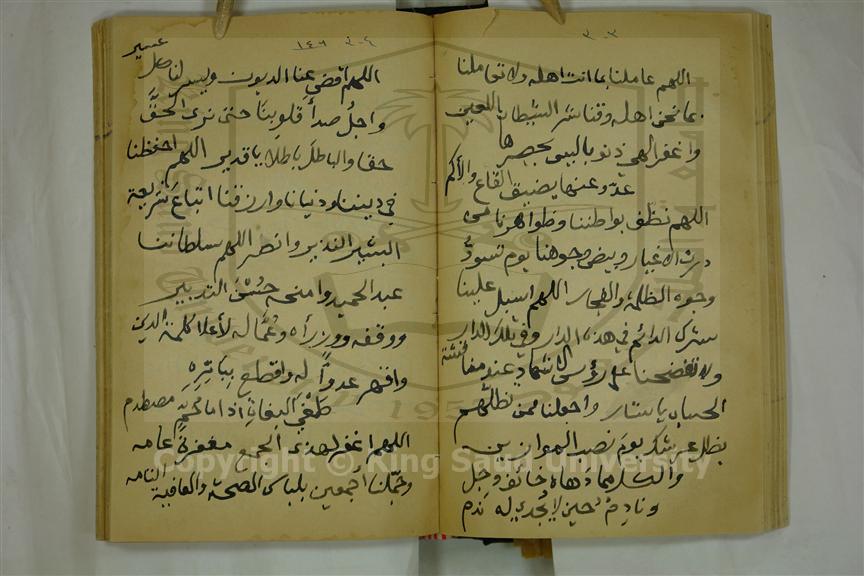 ٣٠٣
اللهم عاملنا بما انت اهله ولا تعاملنا
بما نحن اهله وقنا شر الشيطان اللعين
واغفر الهي ذنوبا ليس يحصرها
عدّ وعنها يضيق القاع والأكم
اللهم نظف بواطننا وظواهرنا من
درن الاغيار وبيض وجوهنا يوم تسودُّ
وجوه الظلمة والفجار اللهم اسبل علينا
سترك الدائم في هذه الدار وفي تلك الدار
ولا تفضحنا على رؤس الاشهاد عند
الحساب ياستار واجعلنا ممن تظلّهم
بظل عرشك يوم نصب الموازين
والكل مما دهاه خائف وجل
ونادم حين لا يُجدي له ندم
٣٠٤ ١٤٦
اللهم اقضي عنا الديون ويسر لنا كل
عسير
واجلُ صدأ قلوبِنَا حتى نرى الحقَّ
حقا والباطلَ باطلا ياقدير اللهم احفظنا
في ديننا ودنيانا وارزقنا اتباعَ شريعة
البشير النذير وانصر اللهم سلطاننا
عبد الحميد وامنحه حُسْنَ التدبير
ووفقه ووزرأه وعُمَّاله لأعلا كلمة الدين
واقهر عدواً له واقطع بباتره
طغي البغاة اذا ما لحربُ مصطدم
اللهم اغفر لهذى الجمع مغفرةً عامه
وجمّلنا اجمعين بلباس الصحة والعافية التامه
Copyright © King Saud University
1957